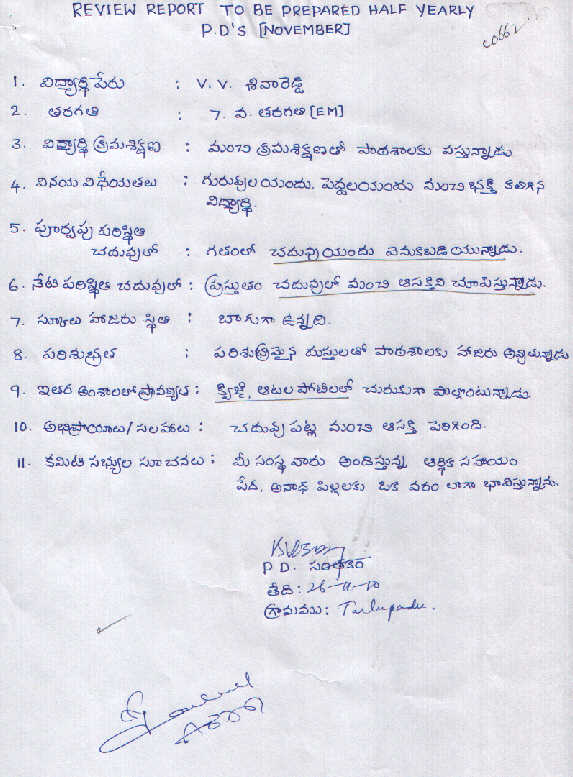 REVIEW REPORT TO BE PREPARED HALF YEARLY
P.D'S [NOVEMBER]
1. విద్యార్థి పేరు : V. V. శివారెడ్డి
2. తరగతి : 7. వ. తరగతి [EM]
3. విద్యార్థి క్రమశిక్షణ : మంచి క్రమశిక్షణతో పాఠశాలకు వస్తున్నాడు
4. వినయ విధేయతలు : గురువుల యందు, పెద్దలయందు మంచి భక్తి కలిగిన
విద్యార్థి.
5. పూర్వపు పరిస్థితి
చదువులో : గతంలో చదువుయందు వెనుకబడి యున్నాడు.
6. నేటి పరిస్థితి చదువులో : ప్రస్తుతం చదువులో మంచి ఆసక్తిని చూపిస్తున్నాడు.
7. స్కూలు హాజరు స్థితి : బాగుగా ఉన్నది.
8. పరిశుభ్రత : పరిశుభ్రమైన దుస్తులతో పాఠశాలకు హాజరు అవుతున్నాడు
9. ఇతర అంశాలలో ప్రావీణ్యత : క్విజ్, ఆటల పోటీలలో చురుకుగా పాల్గొంటున్నాడు.
10. అభిప్రాయాలు/సలహాలు : చదువు పట్ల మంచి ఆసక్తి పెరిగింది.
11. కమిటి సభ్యుల సూచనలు : మీ సంస్థ వారు అందిస్తున్న ఆర్థిక సహాయం
పేద, అనాథ పిల్లలకు ఒక వరం లాగా భావిస్తున్నాను.
P.D. సంతకం
తేది : 26-11-10
గ్రామము : Turlupadu.